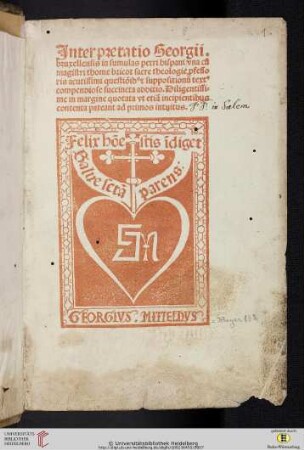 Interpretatio Georgii.
bruxellensis in sumulas petri hispani vna cũ
magistri thome bricot sacre theologie ꝓfesso
ris acutissimi questiõibꝰ et suppositiõni textꝰ
compendiose succincta additio. Diligentissi
me in margine quotata vt etiã incipientibus
contenta pateant ad primos intuitus.
P. P. in Salem
Felix hõe stis ĩdiget
Galue sctã parens:
GEORGIVS. MITTELHVS
UNIVERSITÄTS-
BIBLIOTHEK
HEIDELBERG
© Universitätsbibliothek Heidelberg
gefördert durch
Baden-Württemberg